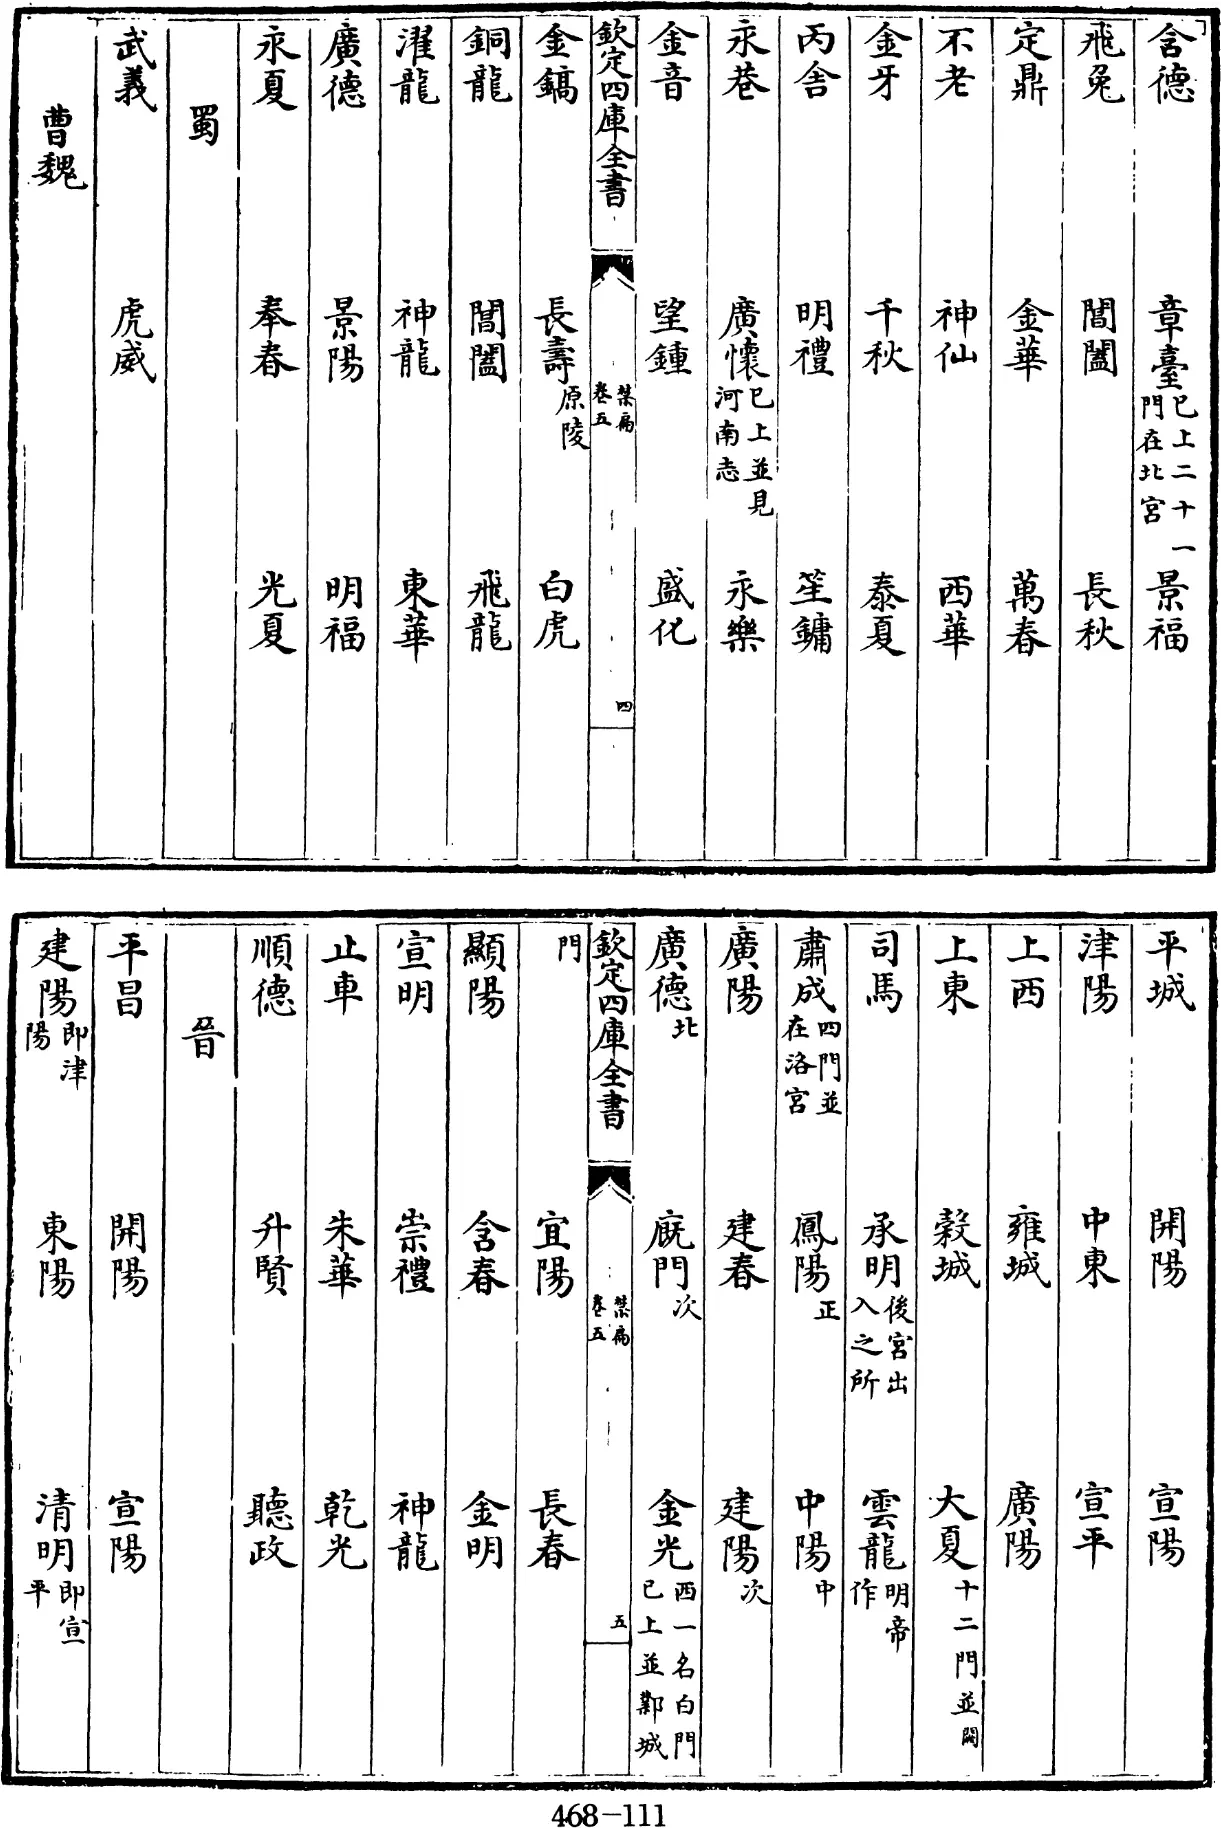 含德　章臺已上二十一門在北宮　景福
飛兔　閶闔　長秋
定鼎　金華　萬春
不老　神仙　西華
金牙　千秋　泰夏
丙舍　明禮　笙鏞
永巷　廣懷已上並見河南志　永樂
金音　望鍾　盛化
欽定四庫全書　禁扁卷五　四
金鎬　長壽原陵　白虎
銅龍　閶闔　飛龍
濯龍　神龍　東華
廣德　景陽　明福
永夏　奉春　光夏
蜀
武義　虎威
曹魏
平城　開陽　宣陽
津陽　中東　宣平
上西　雍城　廣陽
上東　穀城　大夏十二門並闕
司馬　承明後宮出入之所　雲龍明帝作
肅成四門並在洛宮　鳳陽正　中陽中
廣陽　建春　建陽次
廣德北　廐門次　金光西一名白門已上並鄴城
欽定四庫全書　禁扁卷五　五
門　宜陽　長春
顯陽　含春　金明
宣明　崇禮　神龍
止車　朱華　乾光
順德　升賢　聽政
晉
平昌　開陽　宣陽
建陽即津陽　東陽　清明即宣平
468-111